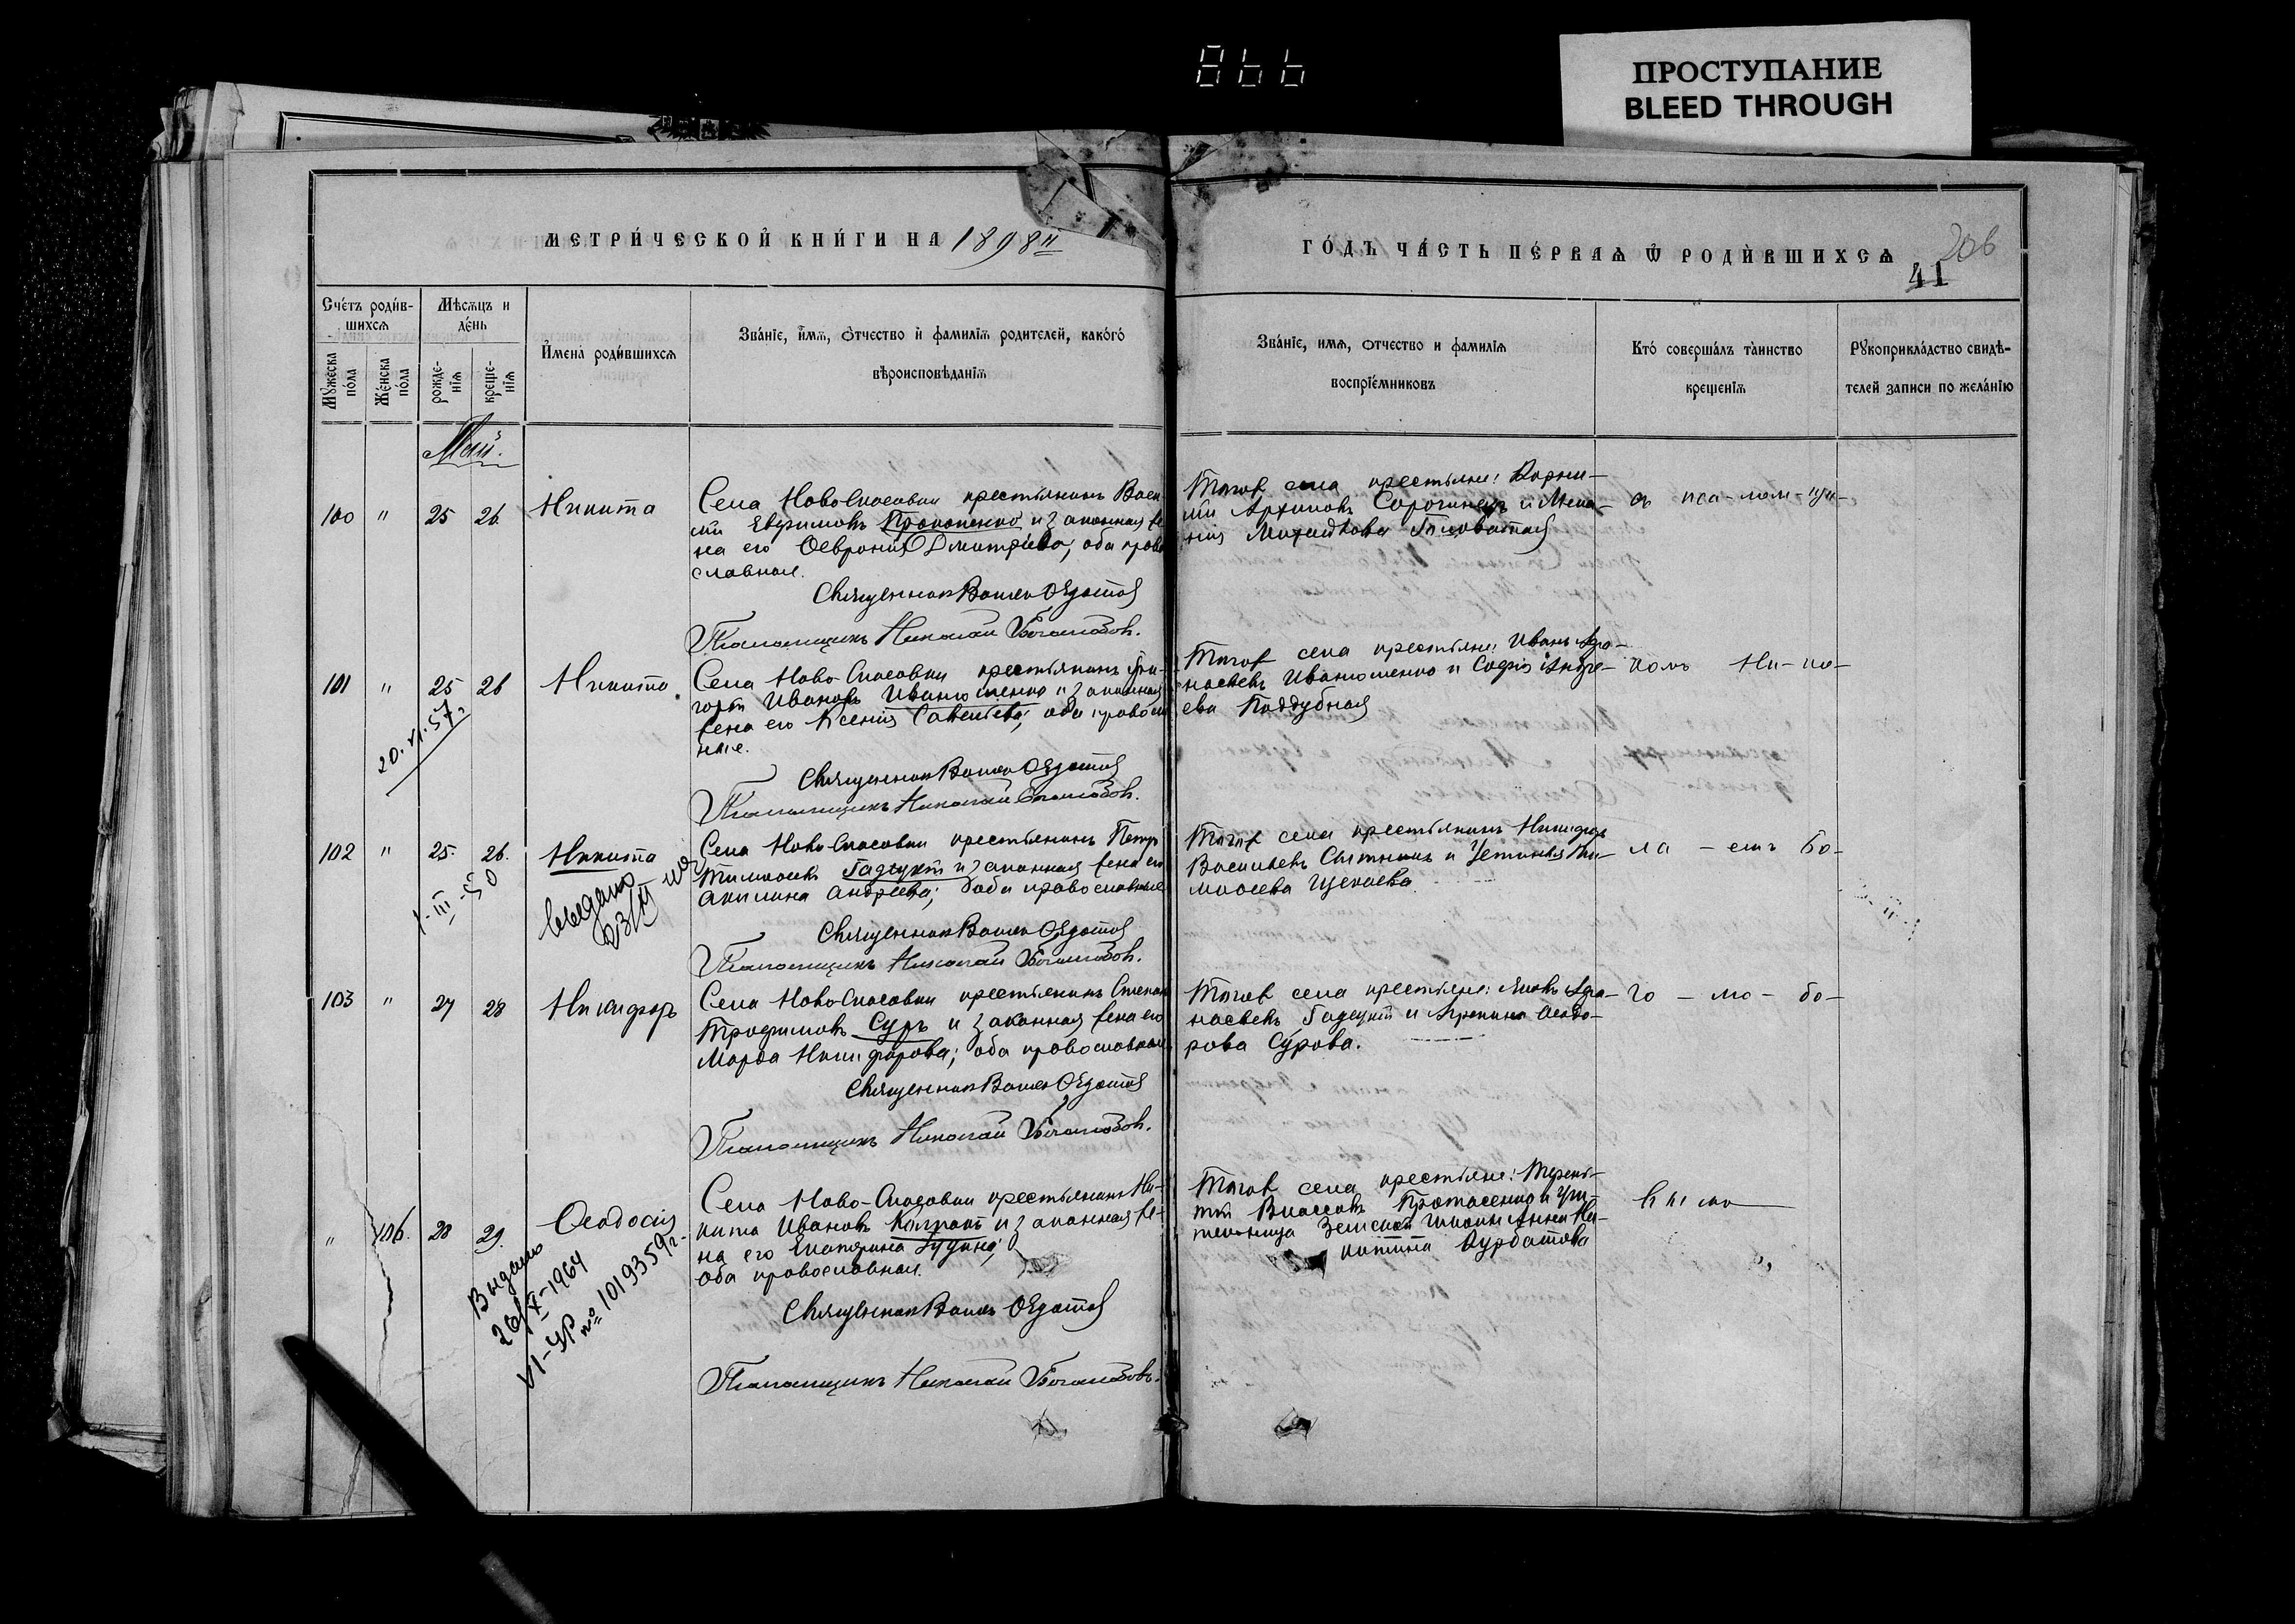 866
ПРОСТУПАНИЕ
BLEED THROUGH
МЕТРИ́ЧЕСКОЙ КНИ́ГИ НА 1898й
ГО́ДЪ ЧА́СТЬ ПЕ́РВАѦ Ѿ РОДИ́ВШИХСѦ
206
41
Сче́тъ роди́в-
шихсѧ
Мѣсѧцъ и
де́нь
Мꙋ́жеска по́ла
Же́нска по́ла
рожде-
нїѧ
креще-
нїѧ
И҆мена̀ роди́вшихсѧ
Зва́нїе, и҆́мѧ, ѻ҆́тчество и҆ фамилїѧ родителей, како́гѡ
вѣроисповѣданїѧ
Зва́нїе, имѧ, ѻтчество и фамилїѧ
воспрїе́мниковъ
Кто́ соверша́лъ та̀инство
крещенїѧ
Рꙋкоприкла́дство свидѣ-
телей записи по жела́нїю
Май.
100 " 25 26 Никита
Села Ново-Спасовки крестьянинъ Васи-
лій Евфимовъ Прокопенко и законная же-
на его Февронія Дмитріева; оба право
славные.
Священник Василий Федотов
Псаломщикъ Николай Боголюбов.
Того села крестьяне: Корни-
лій Архиповъ Сорочинецъ и Мела-
нія Михайлова Головатая
съ пса-лом-щи-
101 " 25 26 Никита
20.VI.57г
Села Ново-Спасовки крестьянинъ Гри-
горій Ивановъ Иванюшенко и законная
жена его Ксенія Савельева; оба правосла
ные.
Священник Василий Федотов
Псаломщикъ Николай Боголюбов.
Того села крестьяне: Иванъ Афа-
насьевъ Иванюшенко и Софія Андре-
ева Поддубная
комъ Ни-ко-
102 " 25. 26. Никита
1-III-50
выдано
23/II
Села Ново-Спасовки крестьянинъ Петръ
Тимофеевъ Гадецкій и законная жена его
Акилина Андреева; оба православные
Священник Василий Федотов
Псаломщикъ Николай Боголюбов.
Того села крестьянинъ Никифоръ
Васильевъ и Устинія Ти-
мофеева
ла - емъ Бо-
103 " 27 28 Никифоръ
Села Ново-Спасовки крестьянинъ Степанъ
Трофимовъ Суръ и законная жена его
Марфа Никифорова; оба православные
Священник Василий Федотов
Псаломщикъ Николай Боголюбов.
Того села крестьяне: Яковъ Афа-
насьевъ Гадецкій и Агрипина Феодо-
рова Сурова.
го - лю - бо-
" 106. 28 29. Феодосія
Выдано
26/X-1964
VI-УР № 1019359
Села Ново-Спасовки крестьянинъ Ни-
кита Ивановъ Колпакъ и законная же-
на его Екатерина
оба православные.
Священник Василий Федотов
Псаломщикъ Николай Боголюбовъ.
Того села крестьяне: Терен-
тій Власовъ Протасенко и учи-
тельница Земской школы Анна Ни-
китина Курбатова
вымъ
"